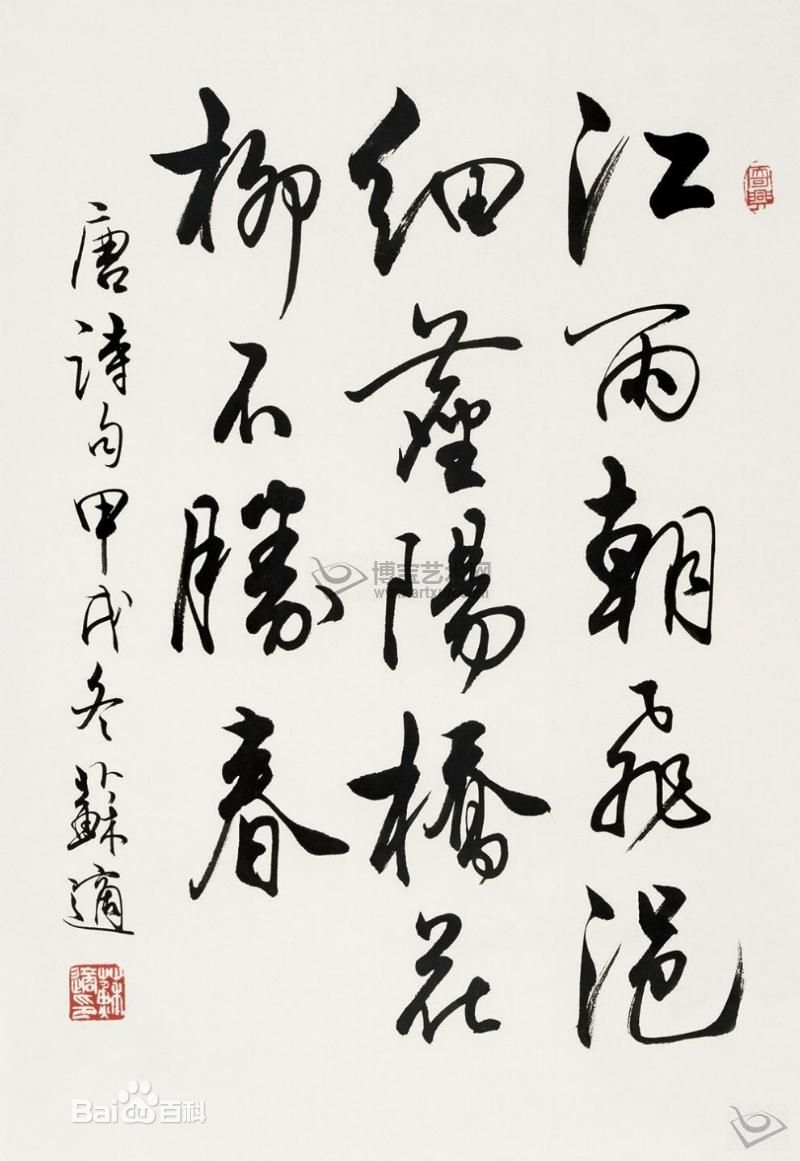 江雨朝飛浥
細塵陽橋花
柳不勝春
唐詩句甲戌冬蘇適
蘇適印
博宝艺术网
Baidu百科